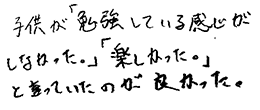 子供が「勉強している感じが
しなかった。」「楽しかった。」
と言っていたのが良かった。